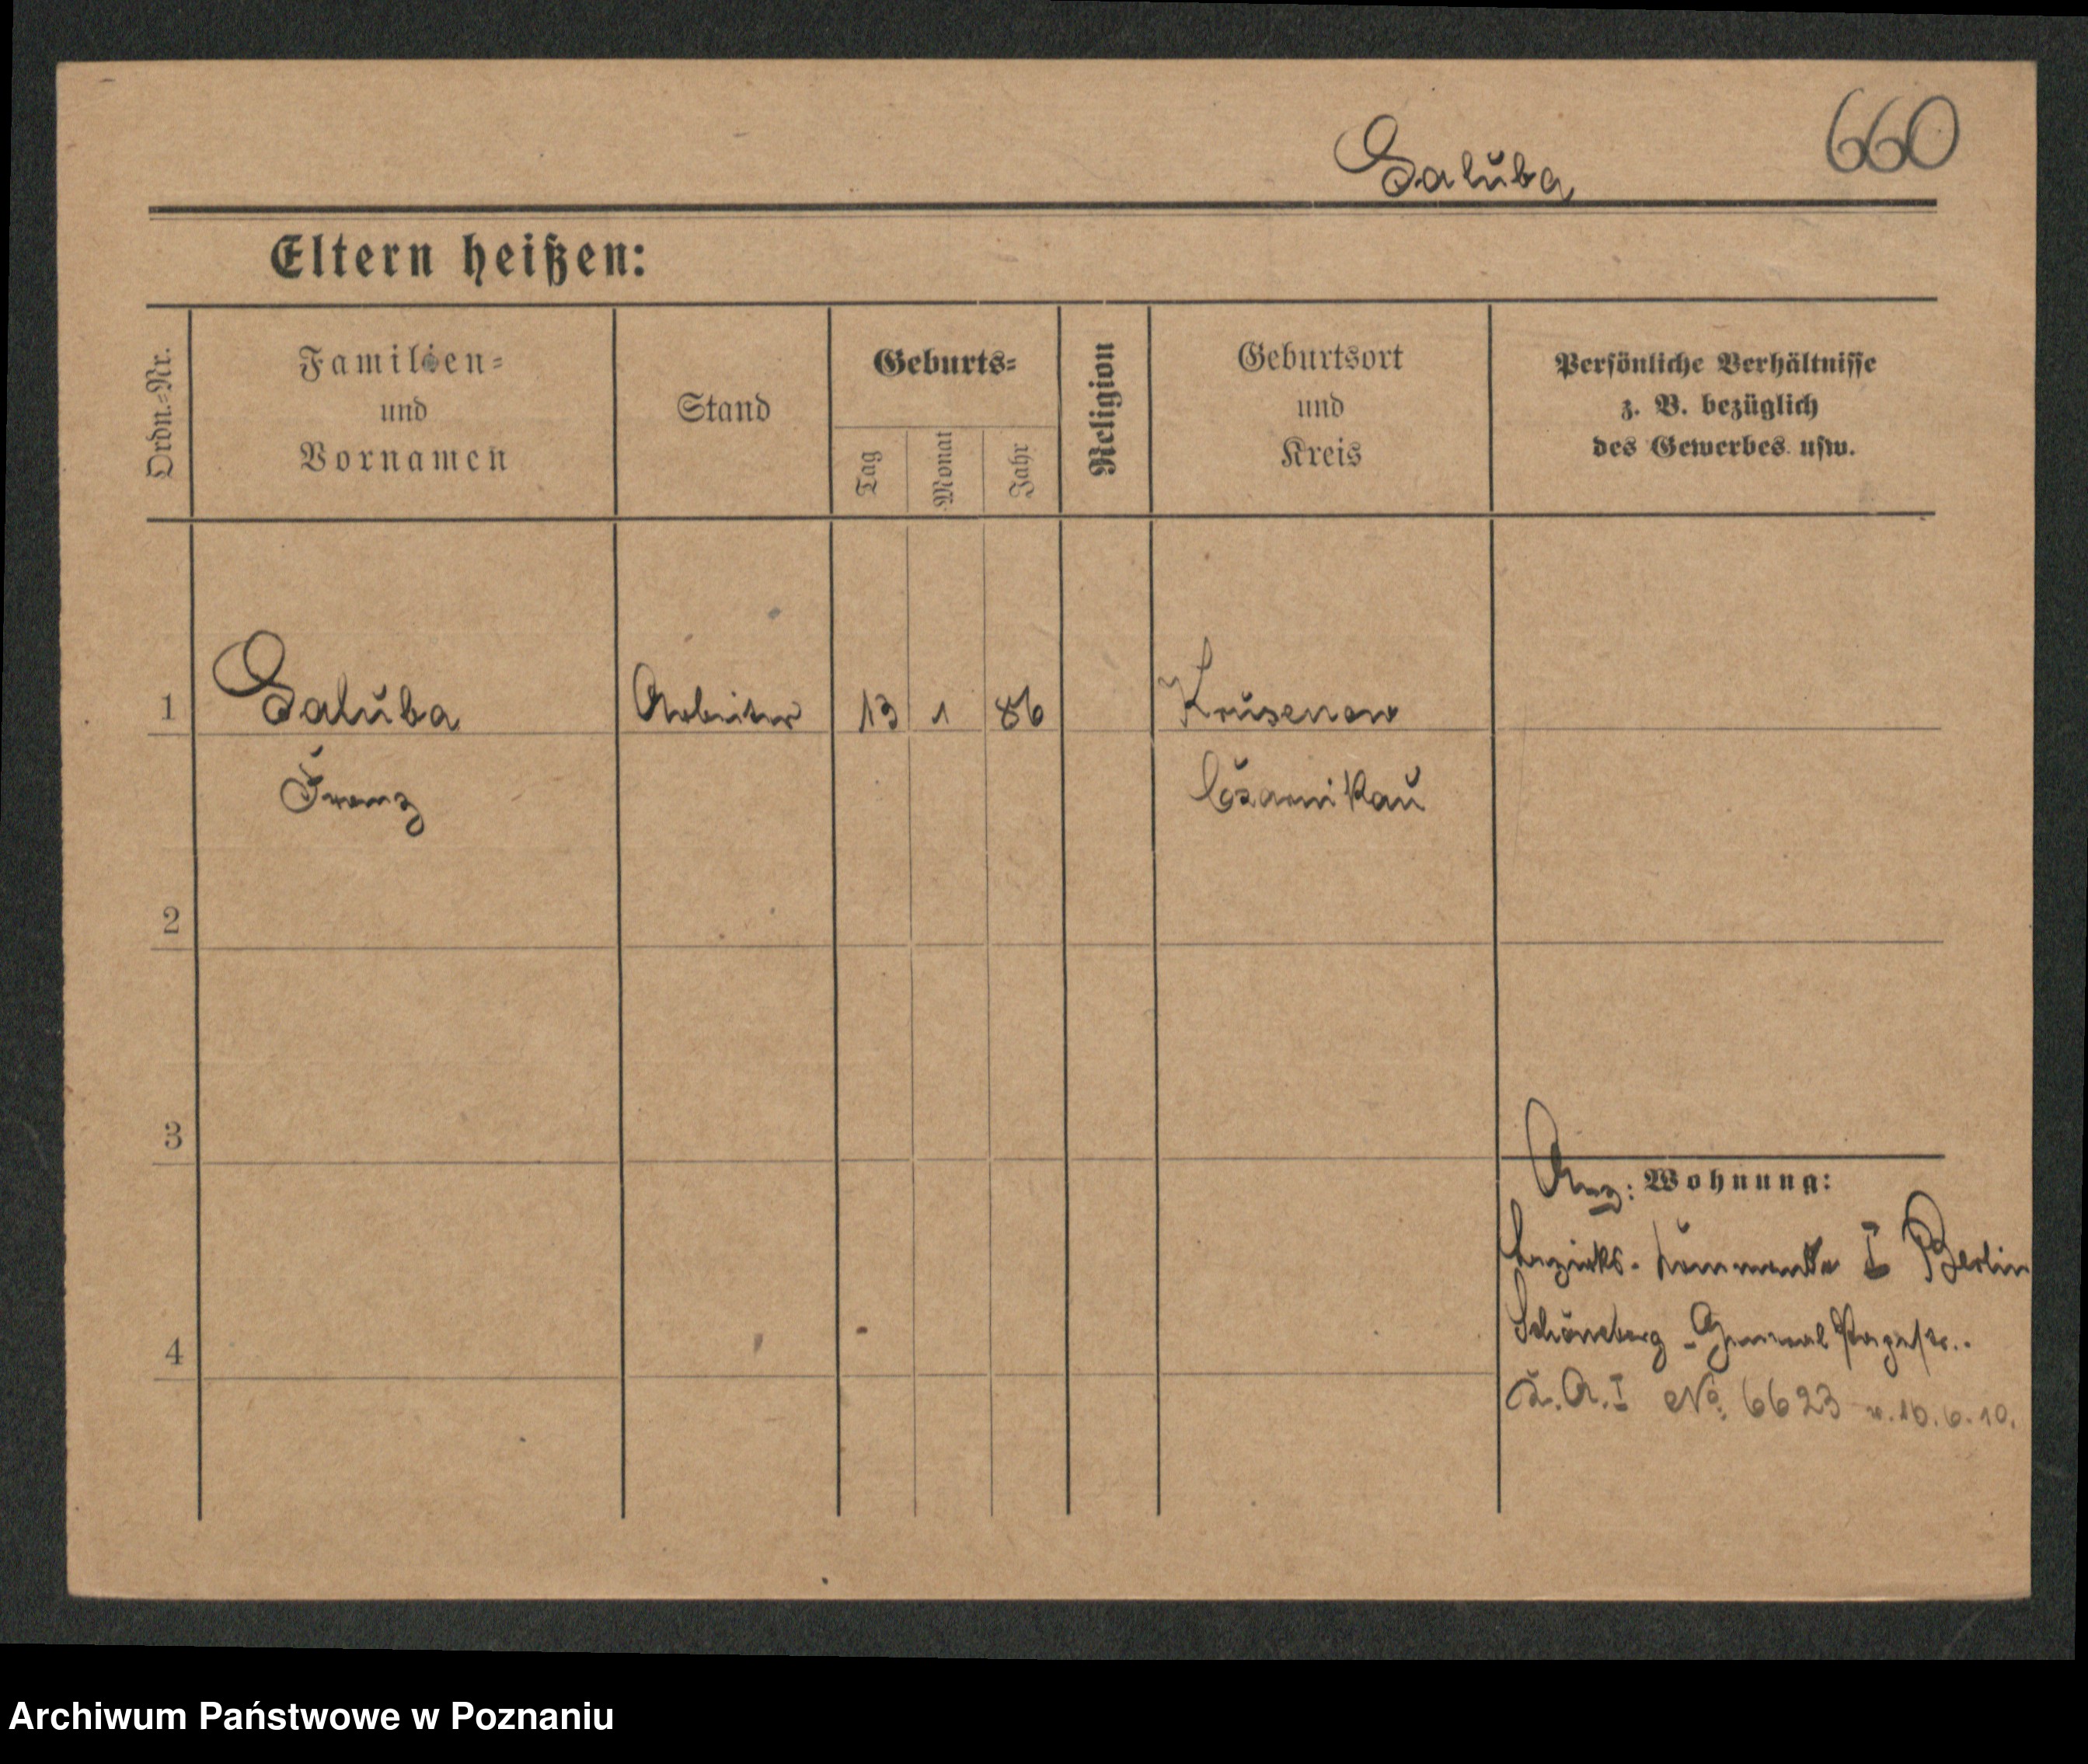 660
Galuba
Eltern heißen:
Ordn.-Nr.
Familien-
und
Vornamen
Stand
Geburts-
Tag
Monat
Jahr
Religion
Geburtsort
und
Kreis
Persönliche Verhältnisse
z. B. bezüglich
des Gewerbes usw.
1 Galuba Arbeiter 13 1 86 Krusenow
Franz Czarnikau
2
3
4
Anz: Wohnung:
Bezirks-Kommando I Berlin
Schöneberg - General Papestr..
I No. 6623 v. 10.6.10.
Archiwum Państwowe w Poznaniu